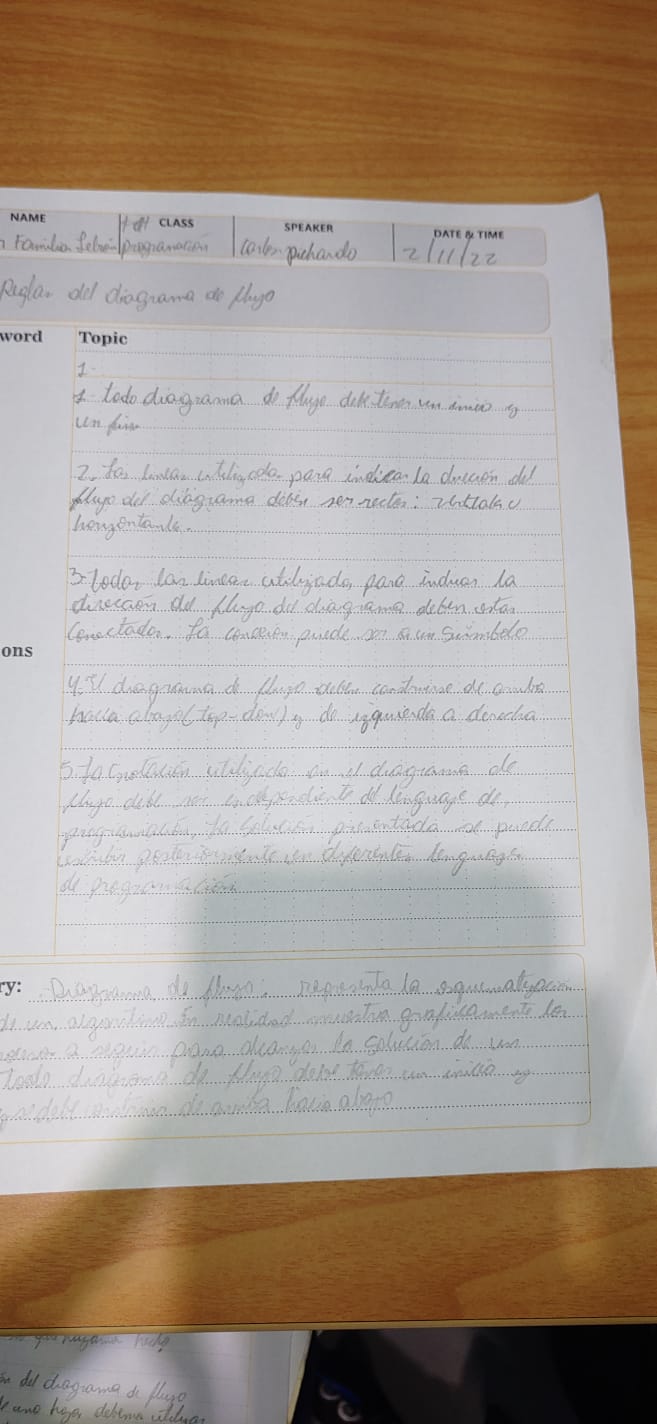 NAME CLASS SPEAKER DATE & TIME
Familia Lebrón programación Carlos pichardo 2/11/22
Reglas del diagrama de flujo
word Topic
1-
1- todo diagrama de flujo debe tener un inicio y
un fin
2. Las lineas utilizada para indicar la dirección del
flujo del diagrama deben ser rectas: verticales y
horizontale.
3- todas las lineas utilizada, para induas la
dirección del flujo del diagrama deben estar
Conectadas. La conexión puede ser a un Suimbolo
ons
4. El diagrama de flujo deben construirse de arriba
hacia abajo (top-dow) y de izquierda a derecha
5. La notación utilizada en el diagrama de
flujo debe ser independiente del lenguaje de,
programación, la solución presentada se puede
escribir posteriormente en diferentes lenguajes
de programación
ry: Diagrama de flujo: representa la esquematización
de un algoritmo. En realidad muestra graficamente los
a seguir para alcanzar la solución de un
todo diagrama de flujo debe tener un inicio y
se debe construir de arriba hacia abajo
que hayamos hecho
del diagrama de flujo
uno hojas debemos utilizar